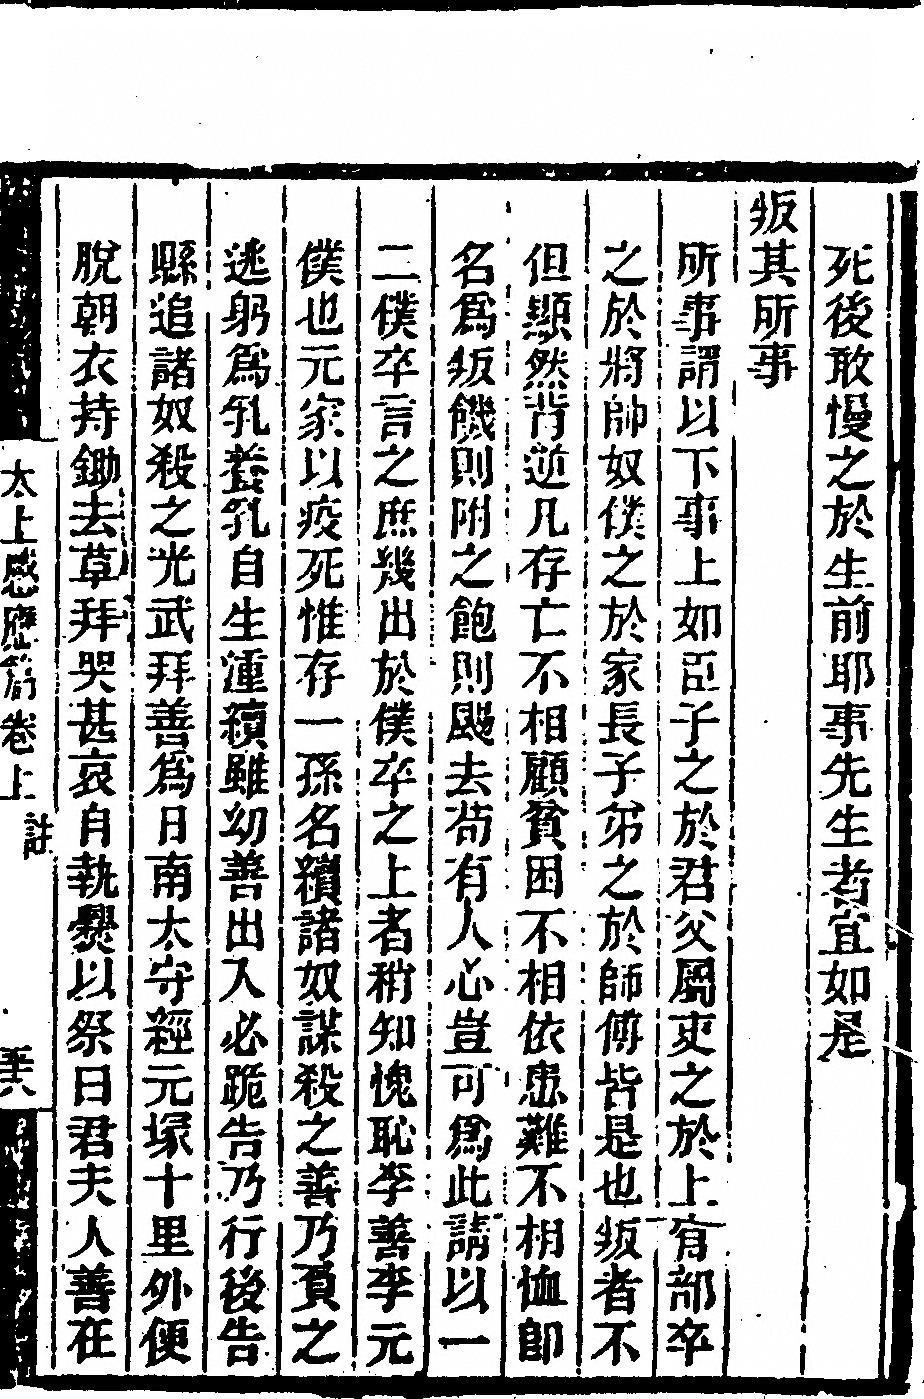 死後敢慢之於生前耶事先生者宜如是
叛其所事
所事謂以下事上如臣子之於君父屬吏之於上官部卒
之於將帥奴僕之於家長子弟之於師傅皆是也叛者不
但顯然背逆凡存亡不相顧貧困不相依患難不相恤卽
名爲叛饑則附之飽則颺去苟有人心豈可爲此請以一
二僕卒言之庶幾出於僕卒之上者稍知愧恥李善李元
僕也元家以疫死惟存一孫名續諸奴謀殺之善乃負之
逃躬爲乳養乳自生湩續雖幼善出入必跪告乃行後告
縣追諸奴殺之光武拜善爲日南太守經元塚十里外便
脫朝衣持鋤去草拜哭甚哀自執爨以祭曰君夫人善在
太上感應篇卷上 註